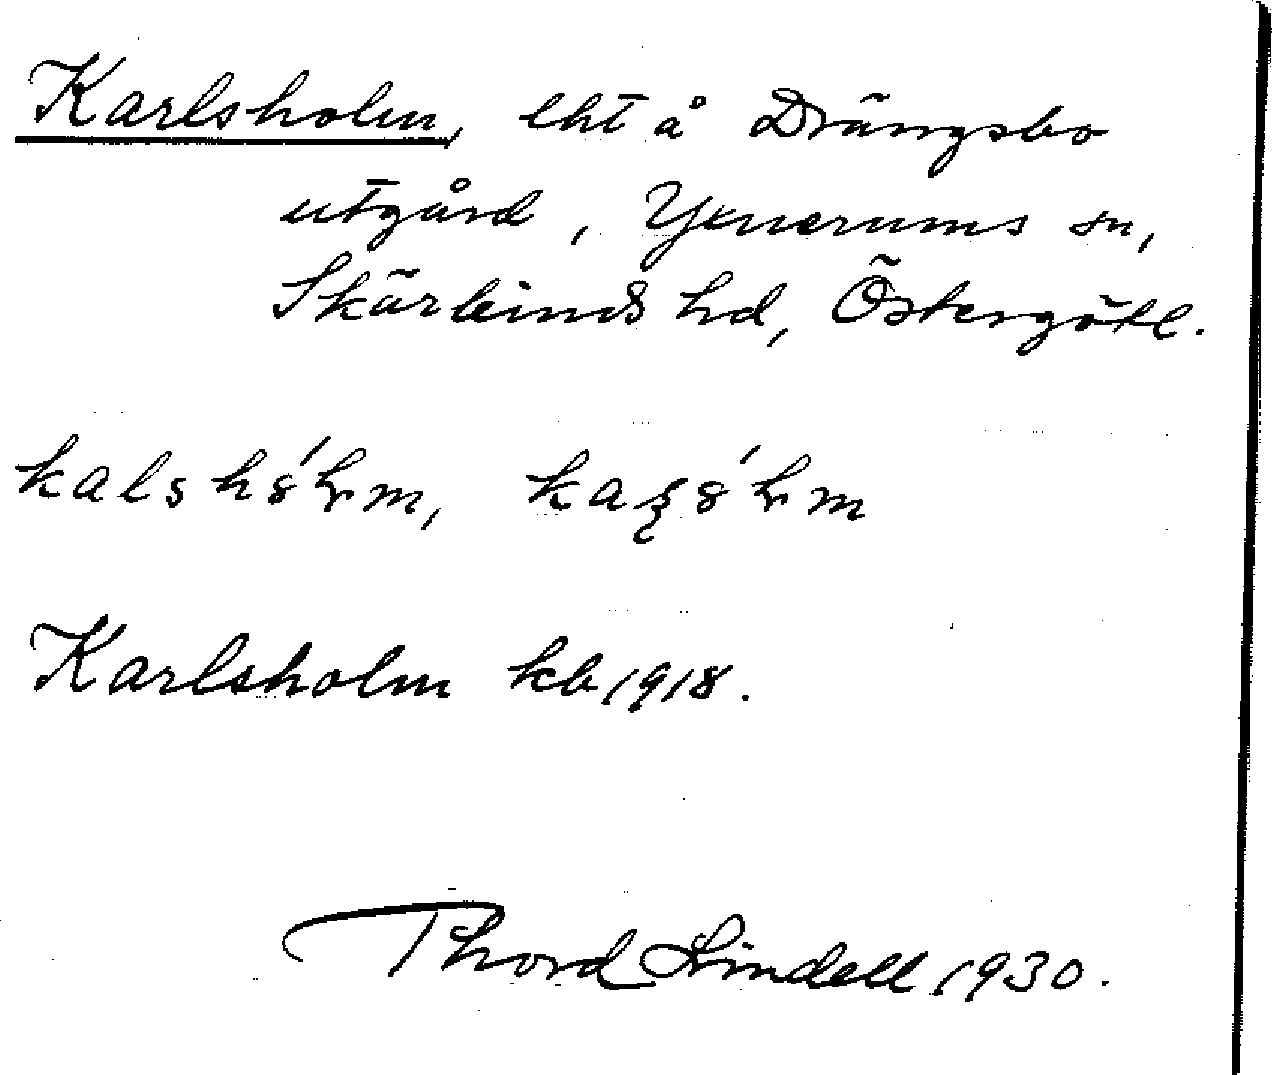 Karlsholm, lht å Drängsbo
utgård, Yxnerums sn,
Skärkinds hd, Östergötl.
kalshȣ́ɫm, kaʂȣ́ɫm
Karlsholm kb 1918.
Thord Lindell 1930.